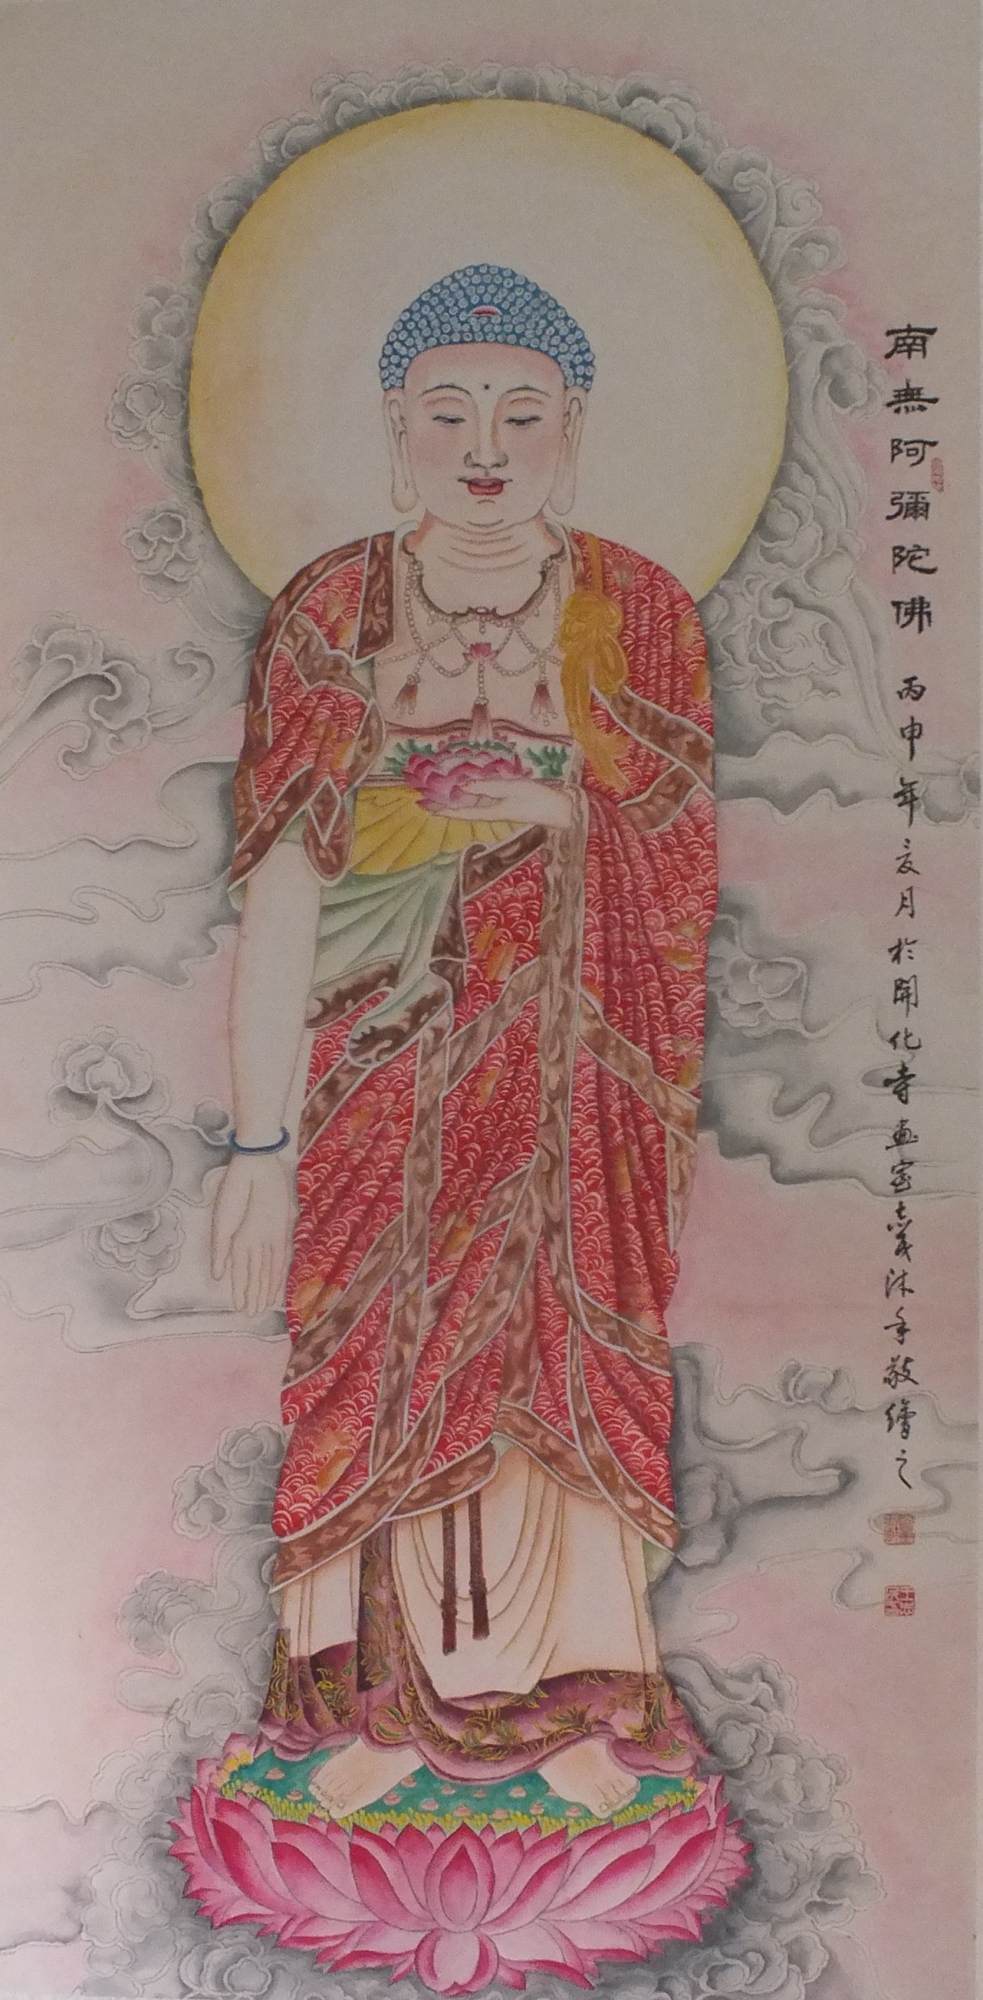 南無阿彌陀佛
丙申年亥月於開化寺畫室 沐手敬繪之